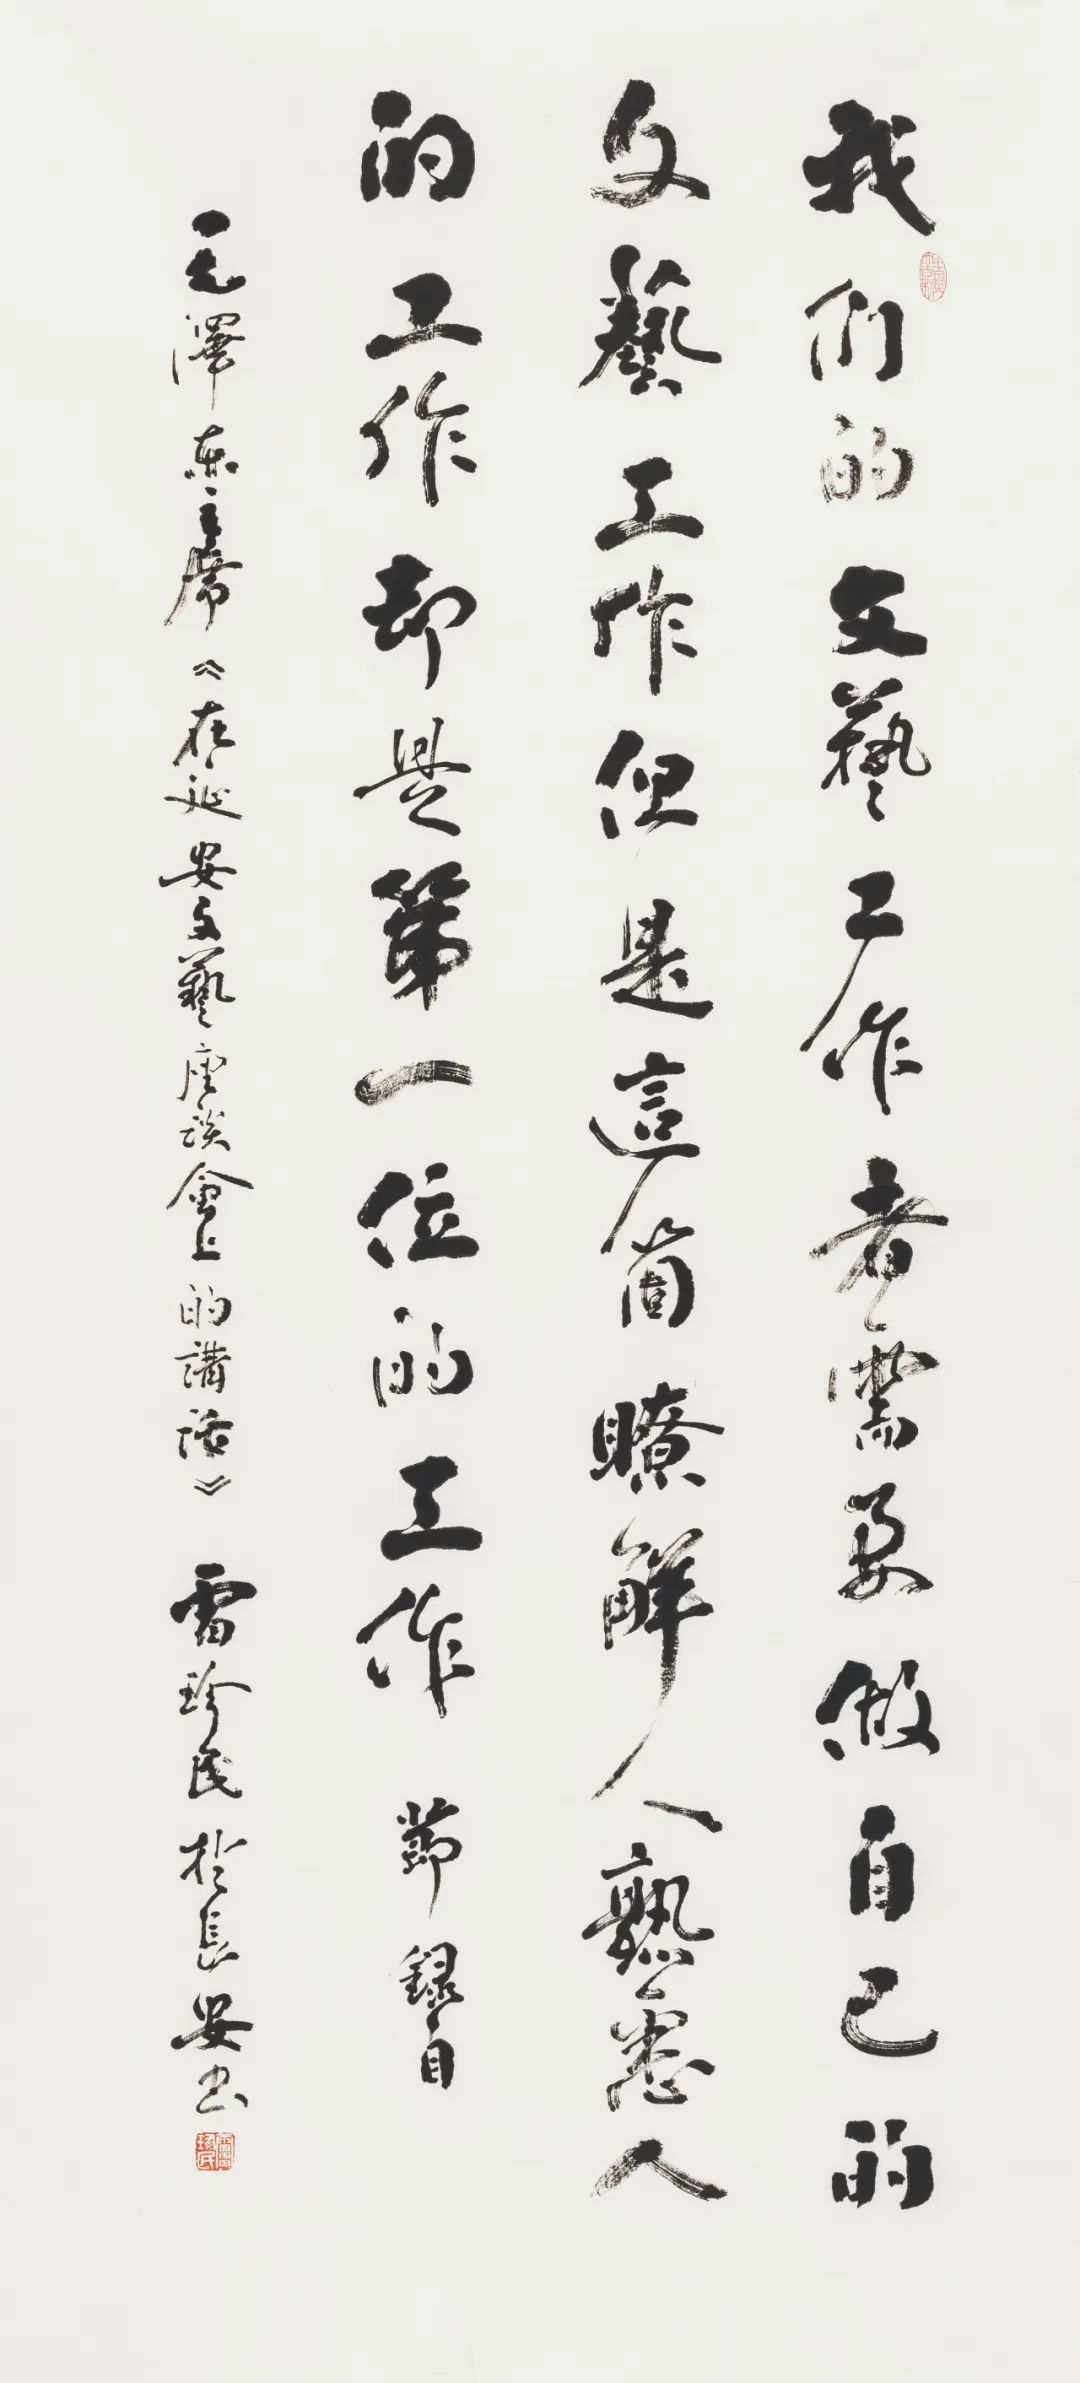 我们的文藝工作者需要做自己的
文藝工作但是這箇瞭解人熟悉人
的工作却是第一位的工作 節録自
毛澤东主席《在延安文藝座谈會上的講话》 雷珍民於長安书
雷珍民